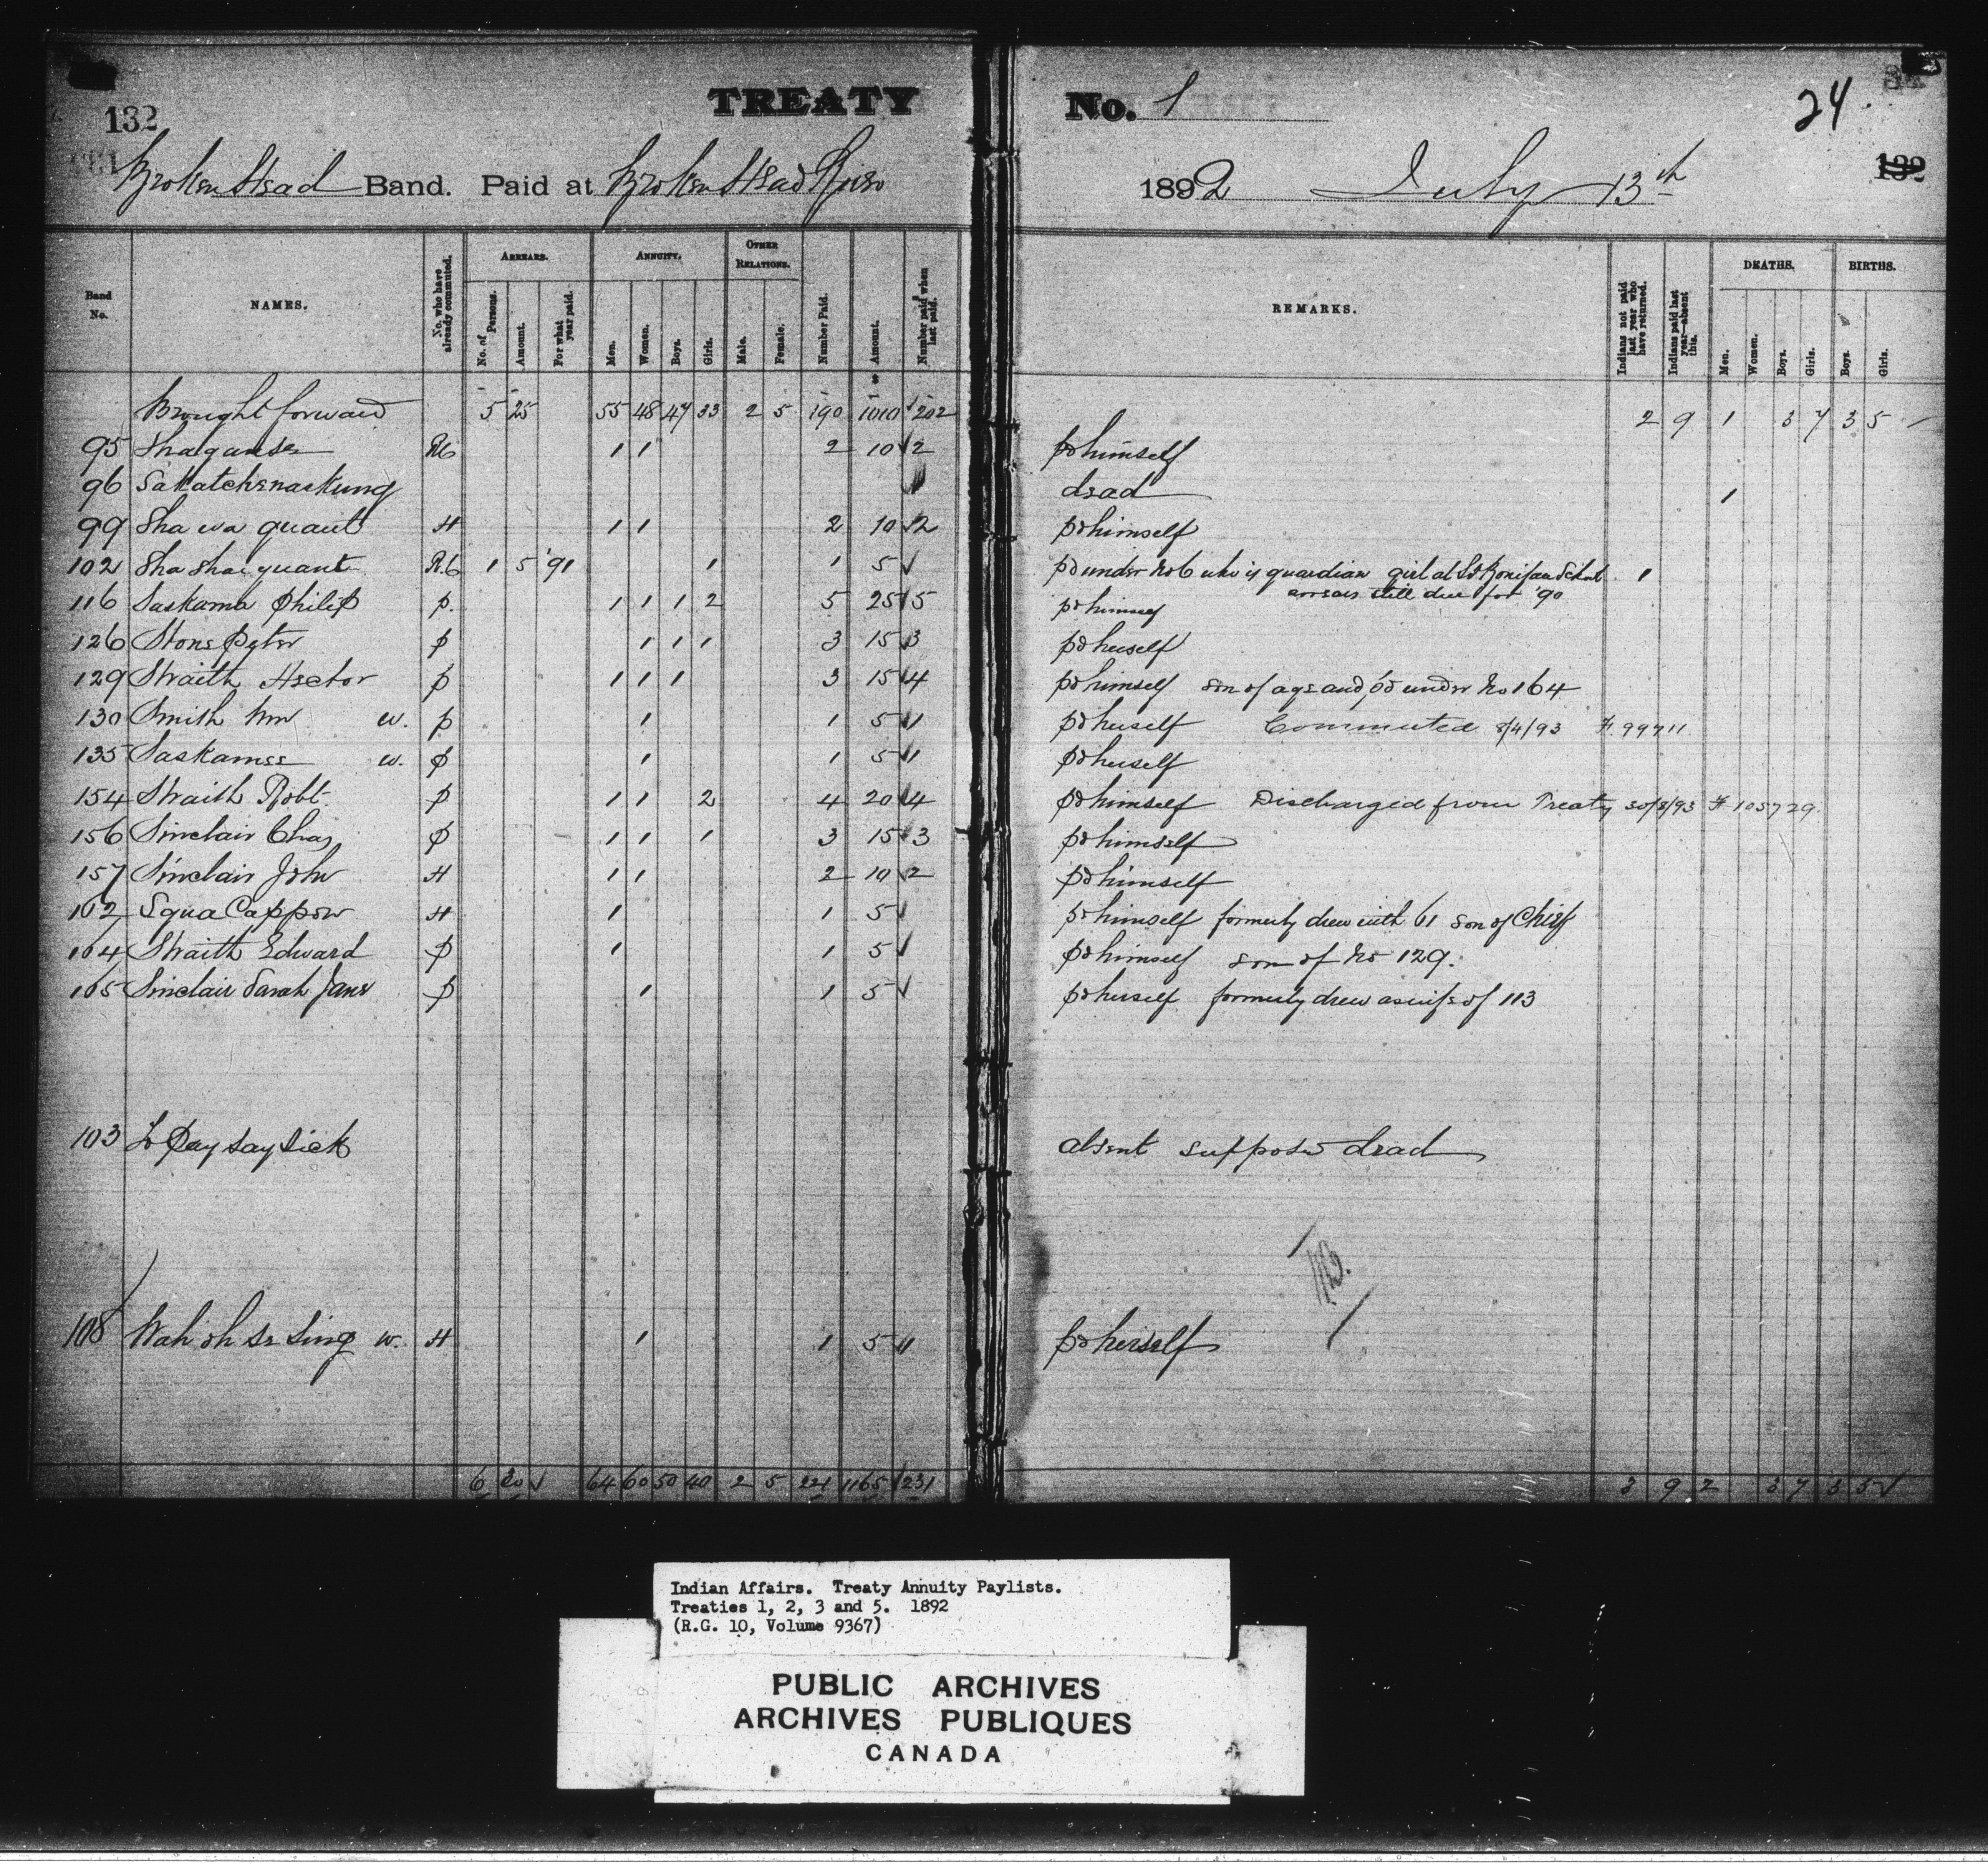 132 TREATY No. 1 24
132
Broken Head Band. Paid at Broken Head River 1892 July 13th
Band No. NAMES. No. who have already commuted. ARREARS. No. of Persons. Amount. For what year paid. ANNUITY. Men. Women. Boys. Girls. OTHER RELATIONS. Male. Female. Number Paid. Amount. Number paid when last paid. REMARKS. Indians not paid last year who have returned. Indians paid last year—absent this. DEATHS. Men. Women. Boys. Girls. BIRTHS. Boys. Girls.
Brought forward 5 25 55 48 47 33 2 5 190 1010 202 2 9 1 3 7 3 5
95 RC 1 1 2 10 2 pd himself
96 Sakatchenaskung dead 1
99 Sha wa quant H 1 1 2 10 2 pd himself
102 Sha shai quant R.C 1 5 '91 1 1 5 pd under No 6 who is guardian girl at St Boniface School 1
arrears still due for '90
116 Saskama Philip p. 1 1 1 2 5 25 5 pd himself
126 Stone Peter p 1 1 1 3 15 3 pd herself
129 Straith Hector p 1 1 1 3 15 4 pd himself son of age and pd under No 164
130 Smith Wm w. p 1 1 5 1 pd herself Commuted 8/4/93 F. 99711
135 Saskamee w. p 1 1 5 1 pd herself
154 Straith Robt. p 1 1 2 4 20 4 pd himself Discharged from Treaty 30/8/93 F 105729.
156 Sinclair Chas p 1 1 1 3 15 3 pd himself
157 Sinclair John H 1 1 2 10 2 pd himself
162 Squa Cappow H 1 1 5 pd himself formerly drew with 61 son of Chief
164 Straith Edward p 1 1 5 pd himself son of No 129.
165 Sinclair Sarah Jane p 1 1 5 pd herself formerly drew as wife of 113
103 Pay say sick absent suppose dead
108 Wah oh se sing w. H 1 1 5 1 pd herself
6 30 64 60 50 40 2 5 221 1165 231 3 9 2 3 7 3 5
Indian Affairs. Treaty Annuity Paylists.
Treaties 1, 2, 3 and 5. 1892
(R.G. 10, Volume 9367)
PUBLIC ARCHIVES
ARCHIVES PUBLIQUES
CANADA